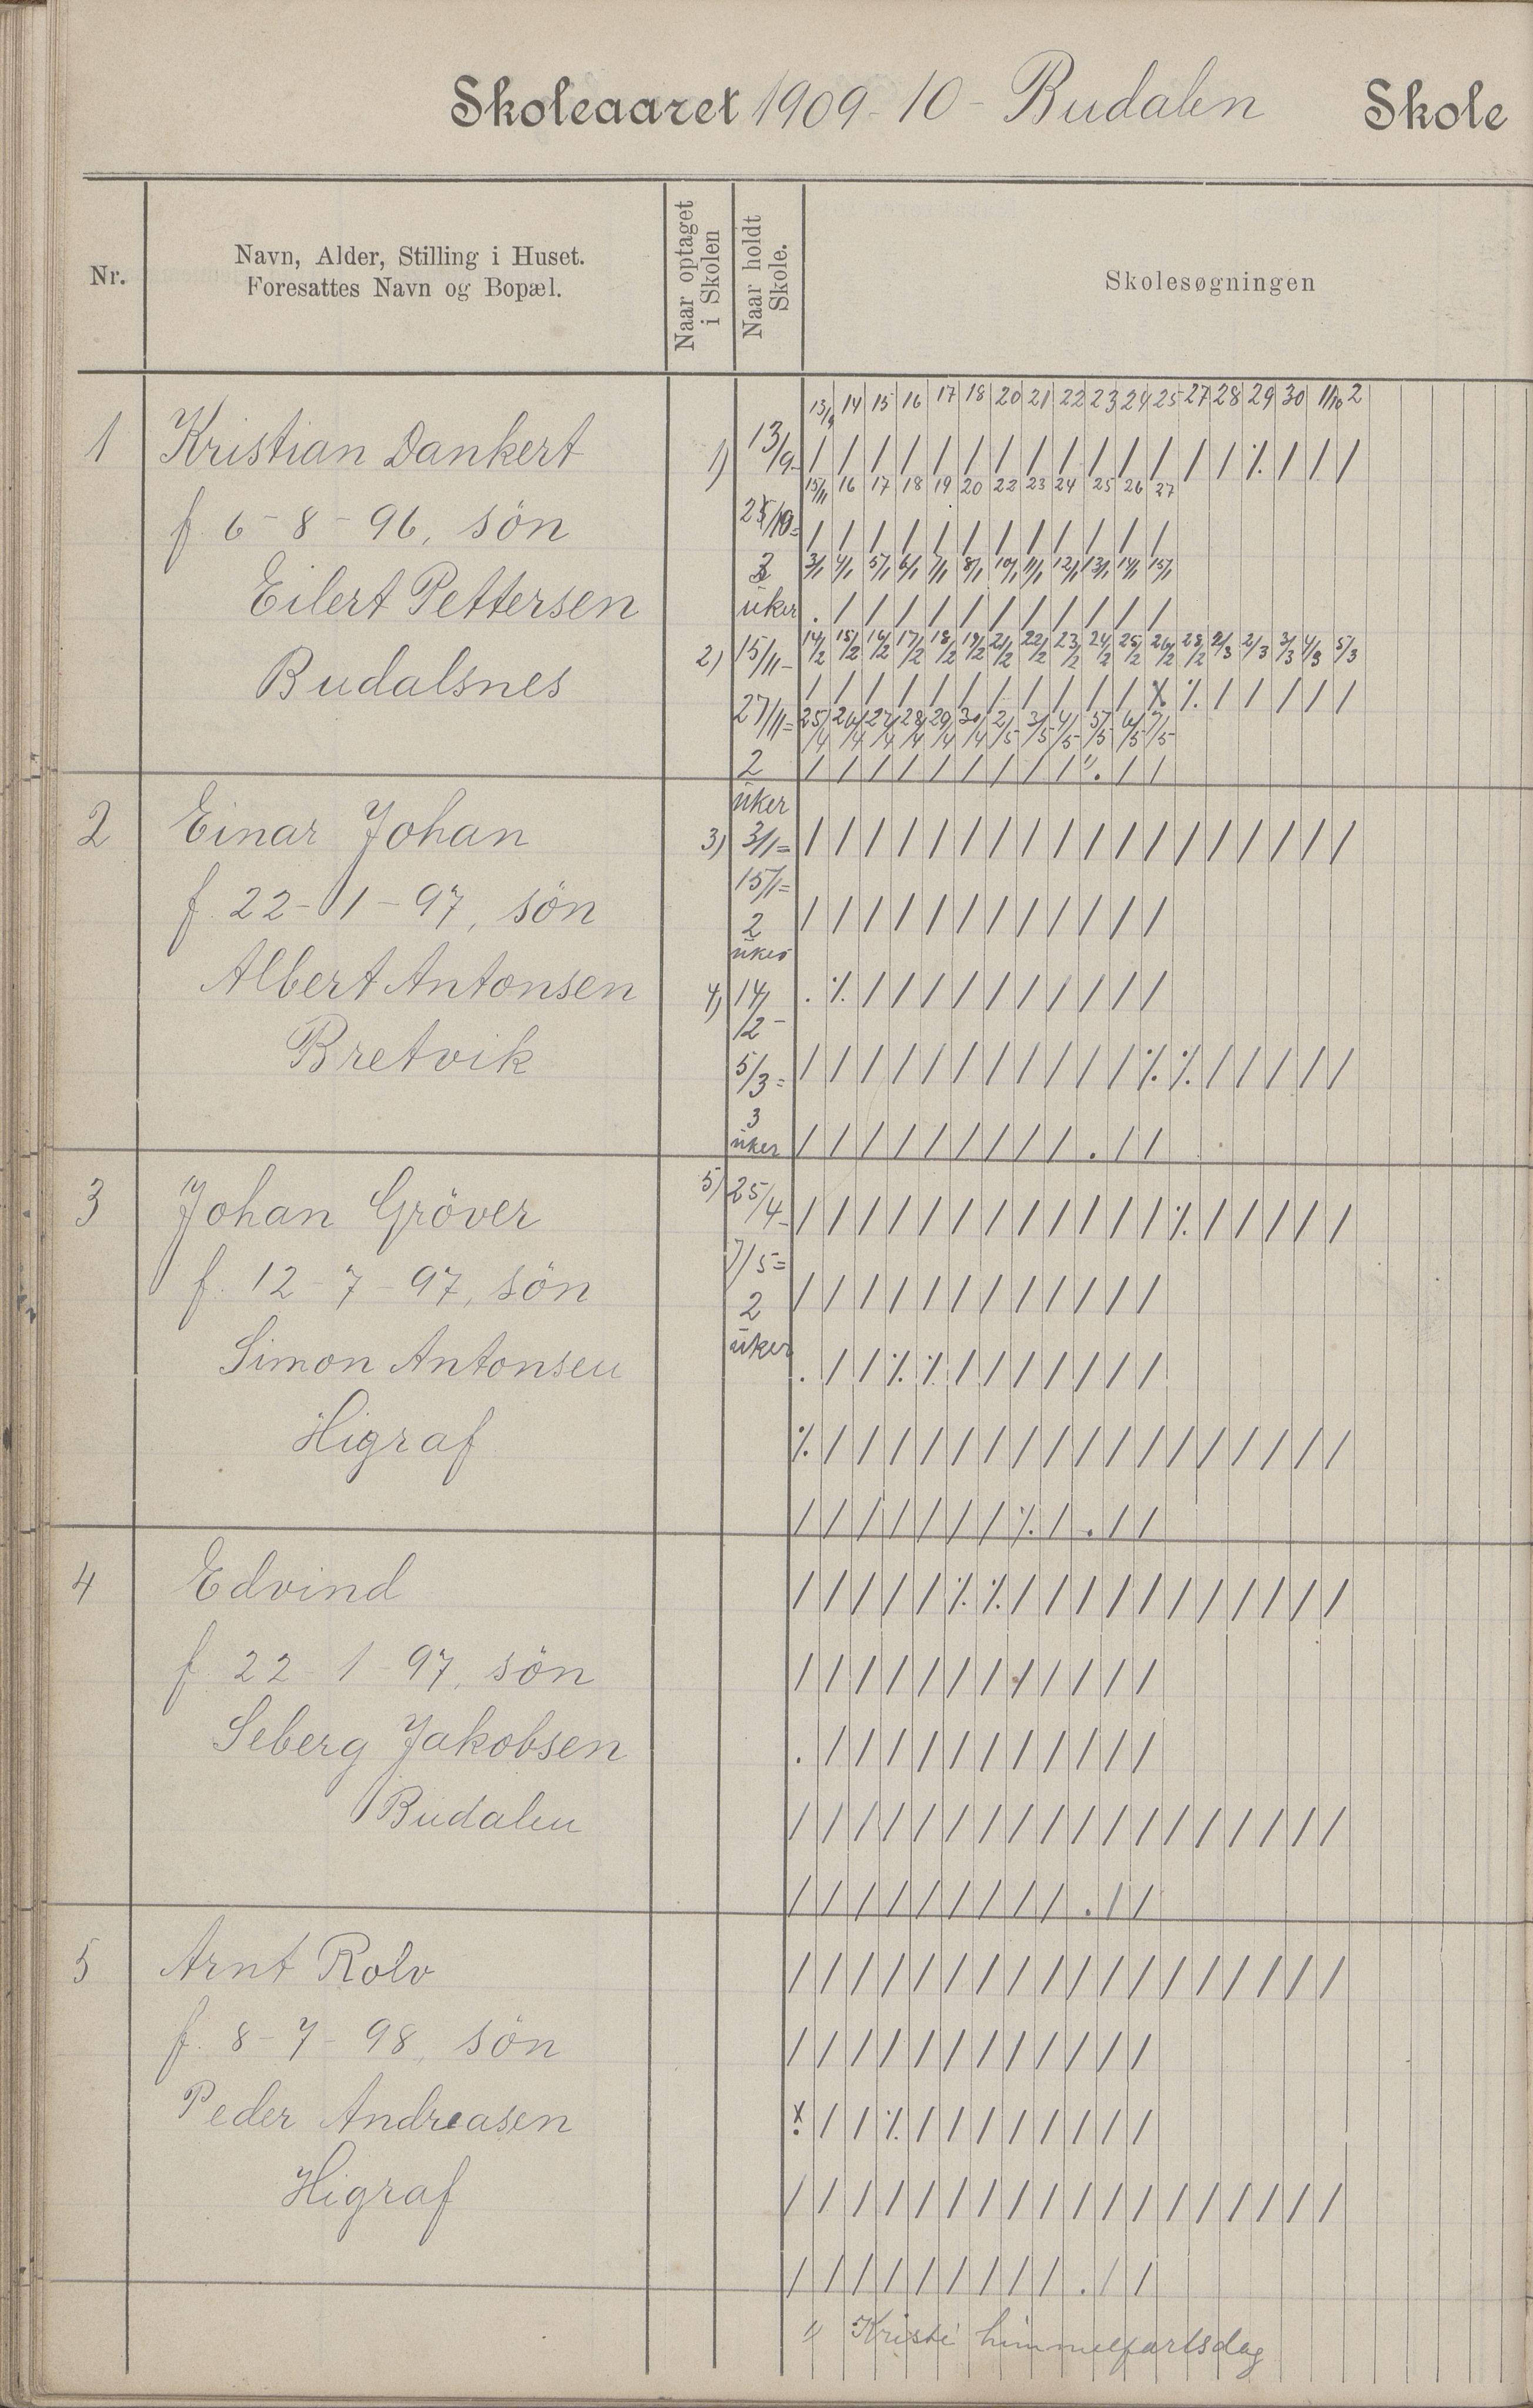 Skoleaaret 1909-10- Budalen Skole
Nr.
Navn, Alder, Stilling i Huset.
Foresattes Navn og Bopæl.
Naar optaget
i Skolen
Naar holdt
Skole.
Skolesøgningen
13/9 14 15 16 17 18 20 21 22 23 24 25 27 28 29 30 1/10 2
1 Kristian Dankert 1) 13/9- / / / / / / / / / / / / / / ٪ / / /
15/11 16 17 18 19 20 22 23 24 25 26 27
f. 6-8-96, sön / / / / / / / / / / / /
3/1 4/1 5/1 6/1 7/1 8/1 10/1 11/1 12/1 13/1 14/1 15/1
Eilert Pettersen uker . / / / / / / / / / / /
2) 15/11- 14/2 15/2 16/2 17/2 18/2 19/2 21/2 22/2 23/2 24/2 25/2 26/2 28/2 2/3 3/3 4/3 5/3
Budalsnes
27/11= 25/4 26/4 27/4 28/4 29/4 30/4 2/5 3/5 4/5 5/5 6/5 7/5
2
uker
2 Einar Johan 3) 3/1= / / / / / / / / / / / / / / / / / /
15/1=
f. 22-1-97, sön 2 / / / / / / / / / / / /
uker
Albert Antonsen 4) 14/2- . ٪ / / / / / / / / / /
Bretvik 5/3= / / / / / / / / / / / ٪ ٪ / / / / /
3
uker / / / / / / / / / . / /
3 Johan Gröver 5) 25/4- / / / / / / / / / / / / ٪ / / / / /
7/5=
f. 12-7-97, sön 2 / / / / / / / / / / / /
Simon Antonsen uker . / / ٪ ٪ / / / / / / /
Higraf ٪ / / / / / / / / / / / / / / / / /
/ / / / / / / ٪ / . / /
4 Edvind / / / / / ٪ ٪ / / / / / / / / / / /
f. 22-1-97, sön / / / / / / / / / / / /
Seberg Jakobsen . / / / / / / / / / / /
Budalen / / / / / / / / / / / / / / / / / /
/ / / / / / / / / . / /
5 Arnt Rolv / / / / / / / / / / / / / / / / / /
f. 8-7-98, sön / / / / / / / / / / / /
Peder Andreasen x / / ٪ / / / / / / / /
Higraf / / / / / / / / / / / / / / / / / /
/ / / / / / / / / . / /
1) Kristi himmelfartsdag